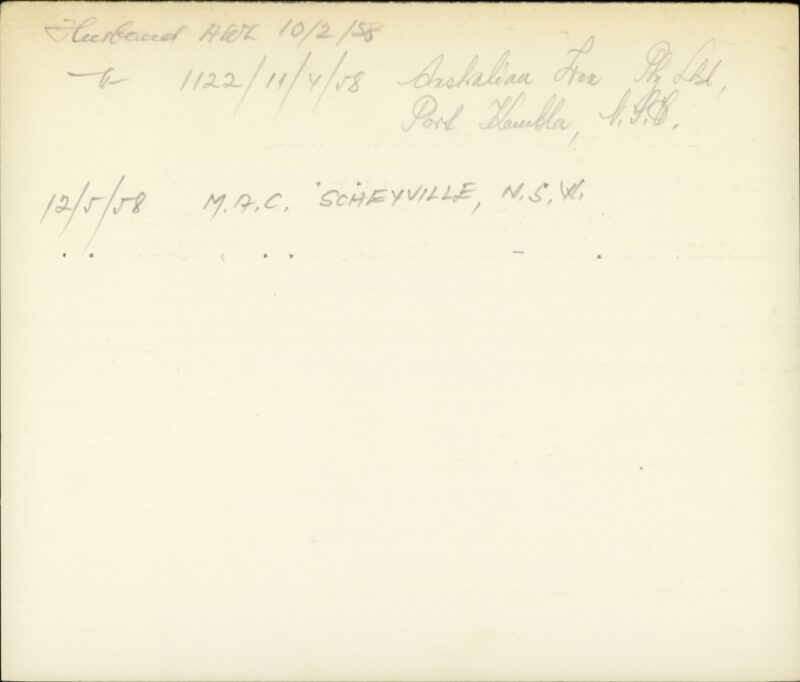 Husband AWL 10/2/58
-"- 1122/11/4/58 Australian Iron Pty Ltd,
Port Kembla, N.S.W.
12/5/58 M.A.C. SCHEYVILLE, N.S.W.